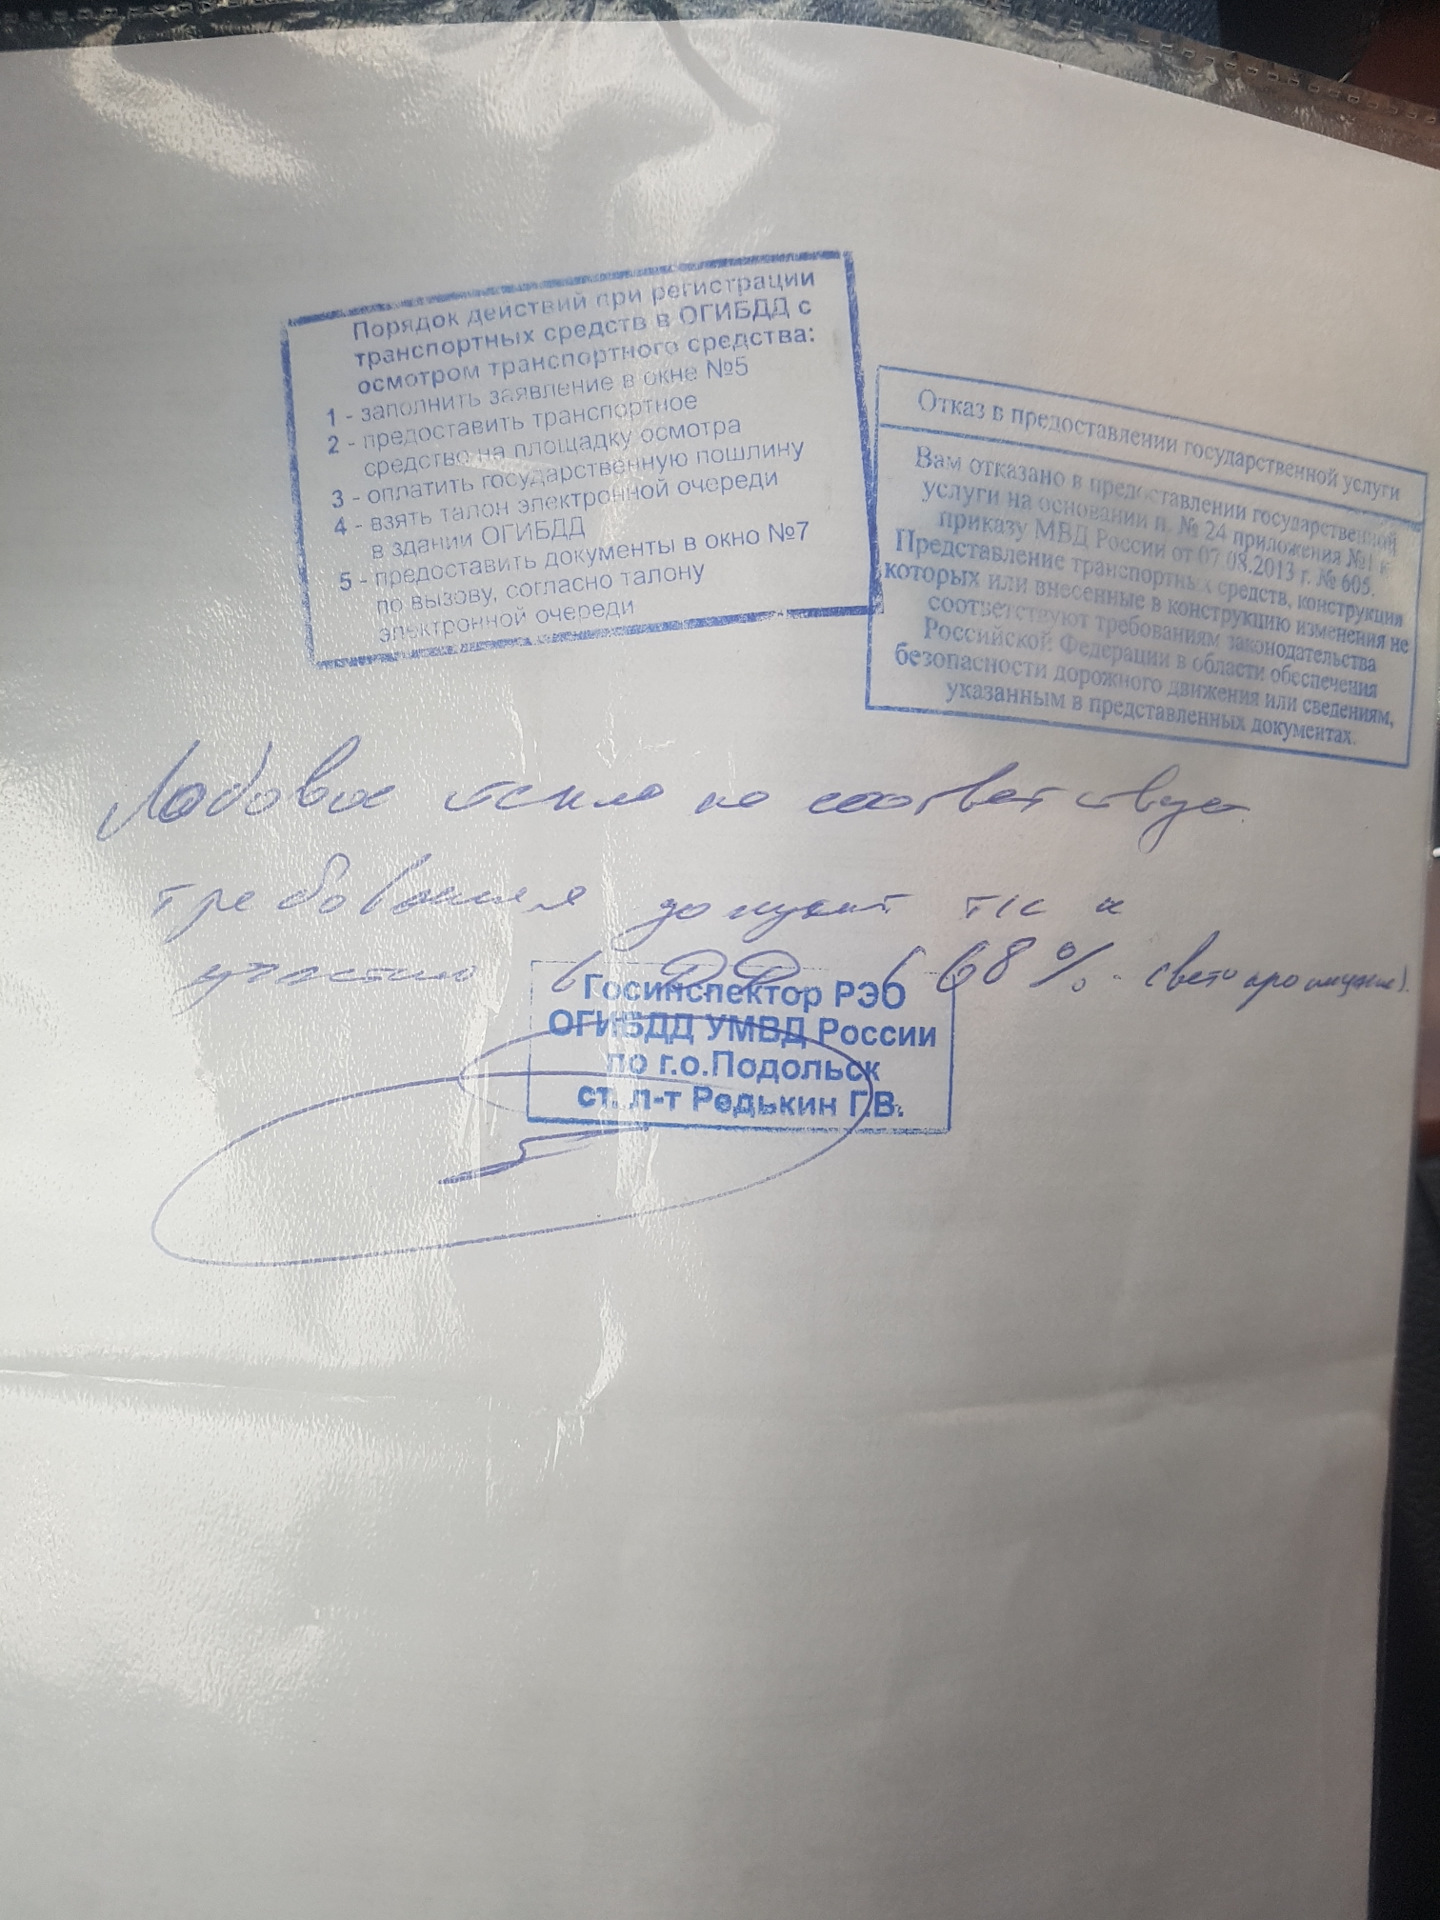 Порядок действий при регистрации
транспортных средств в ОГИБДД с
осмотром транспортного средства:
1 - заполнить заявление в окне №5
2 - предоставить транспортное
средство на площадку осмотра
3 - оплатить государственную пошлину
4 - взять талон электронной очереди
в здании ОГИБДД
5 - предоставить документы в окно №7
по вызову, согласно талону
электронной очереди
Отказ в предоставлении государственной услуги
Вам отказано в предоставлении государственной
услуги на основании п. № 24 приложения №1 к
приказу МВД России от 07.08.2013 г. № 605.
Представление транспортных средств, конструкция
которых или внесенные в конструкцию изменения не
соответствуют требованиям законодательства
Российской Федерации в области обеспечения
безопасности дорожного движения или сведениям,
указанным в представленных документах.
Лобовое стекло не соответствует
требованиям допуска т/с к
участию в ДД 68% (светопропускание).
Госинспектор РЭО
ОГИБДД УМВД России
по г.о.Подольск
ст. л-т Редькин Г.В.